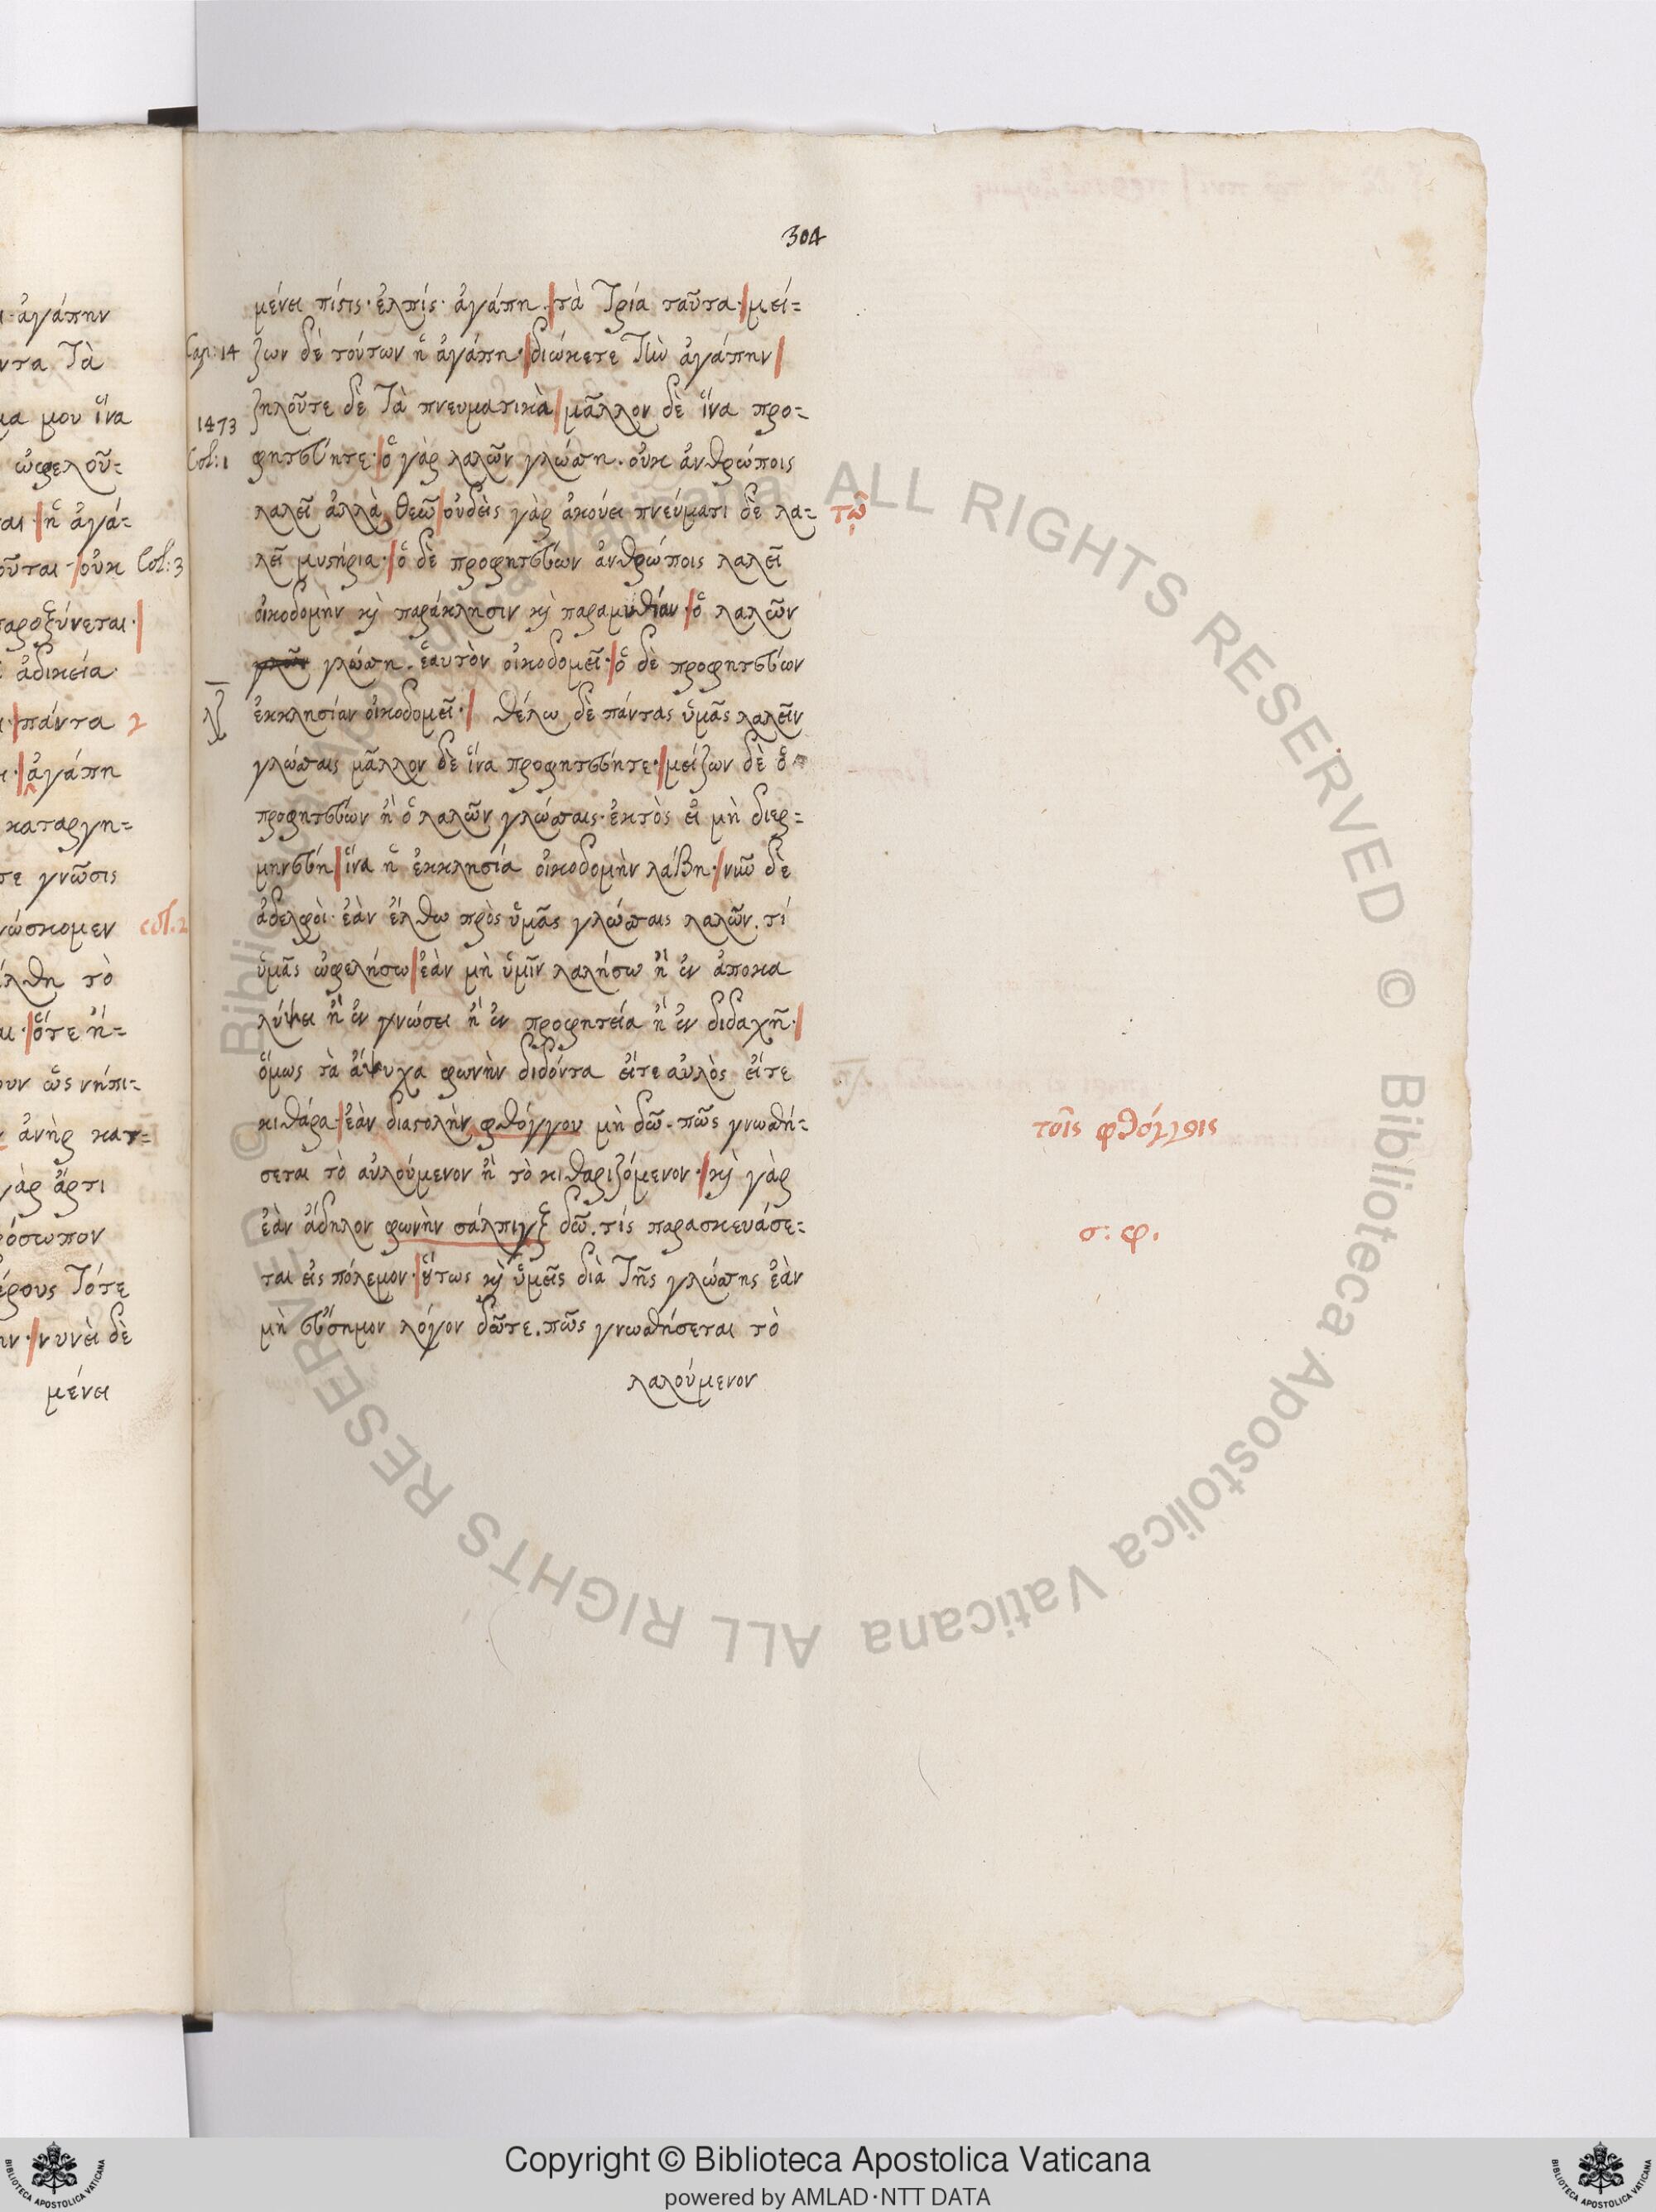 304
μένει πίστις· ἐλπίς· ἀγάπη· τὰ τρία ταῦτα· μεί=
Cap: 14 ζων δὲ τούτων ἡ ἀγάπη· διώκετε τὴν ἀγάπην
ζηλοῦτε δὲ τὰ πνευματικὰ μᾶλλον δὲ ἵνα προ=
1473
Col: 1 φητεύητε· ὁ γὰρ λαλῶν γλώσση· οὐκ ἀνθρώποις
λαλεῖ ἀλλὰ θεῶ οὐδεὶς γὰρ ἀκούει πνεύματι δὲ λα= τῶ
λεῖ μυστήρια· ὁ δὲ προφητεύων ἀνθρώποις λαλεῖ
οἰκοδομὴν καὶ παράκλησιν καὶ παραμυθίαν· ὁ λαλῶν
γλώσση· ἑαυτὸν οἰκοδομεῖ· ὁ δὲ προφητεύων
λζ ἐκκλησίαν οἰκοδομεῖ· θέλω δὲ πάντας ὑμᾶς λαλεῖν
γλώσσαις μᾶλλον δὲ ἵνα προφητεύητε· μείζων δὲ ὁ
προφητεύων ἢ ὁ λαλῶν γλώσσαις· ἐκτὸς εἰ μὴ διερ=
μηνεύη ἵνα ἡ ἐκκλησία οἰκοδομὴν λάβη· νῦν δὲ
ἀδελφοὶ· ἐὰν ἔλθω πρὸς ὑμᾶς γλώσσαις λαλῶν. τί
ὑμᾶς ὠφελήσω ἐὰν μὴ ὑμῖν λαλήσω ἢ ἐν ἀποκα
λύψει ἢ ἐν γνώσει ἢ ἐν προφητεία ἢ ἐν διδαχῆ·
ὅμως τὰ ἄψυχα φωνὴν διδόντα εἴτε αὐλὸς εἴτε
κιθάρα· ἐὰν διαστολὴν φθόγγου μὴ δῶ· πῶς γνωσθή= τοῖς φθόγγοις
σεται τὸ αὐλούμενον ἢ τὸ κιθαριζόμενον· καὶ γὰρ
ἐὰν ἄδηλον φωνὴν σάλπιγξ δῶ. τίς παρασκευάσε= σ: φ.
ται εἰς πόλεμον· οὕτως καὶ ὑμεῖς διὰ τῆς γλώσσης ἐὰν
μὴ εὔσημον λόγον δῶτε. πῶς γνωσθήσεται τὸ
λαλούμενον
ἀγάπην
τὰ
μου ἵνα
ὠφελοῦ=
ἡ ἀγά=
οὐκ Col: 3
παροξύνεται·
ἀδικεία
πάντα 2
ἀγάπη
καταργη=
γνῶσις
col. 2
τὸ
ὅτε ἤ=
ὡς νήπι=
ἀνὴρ κατ=
ἄρτι
τότε
νυνὶ δὲ
μένει
© Biblioteca Apostolica Vaticana ALL RIGHTS RESERVED © Biblioteca Apostolica Vaticana ALL RIGHTS RESERVED
Copyright © Biblioteca Apostolica Vaticana
powered by AMLAD·NTT DATA
BIBLIOTECA APOSTOLICA VATICANA
BIBLIOTECA APOSTOLICA VATICANA